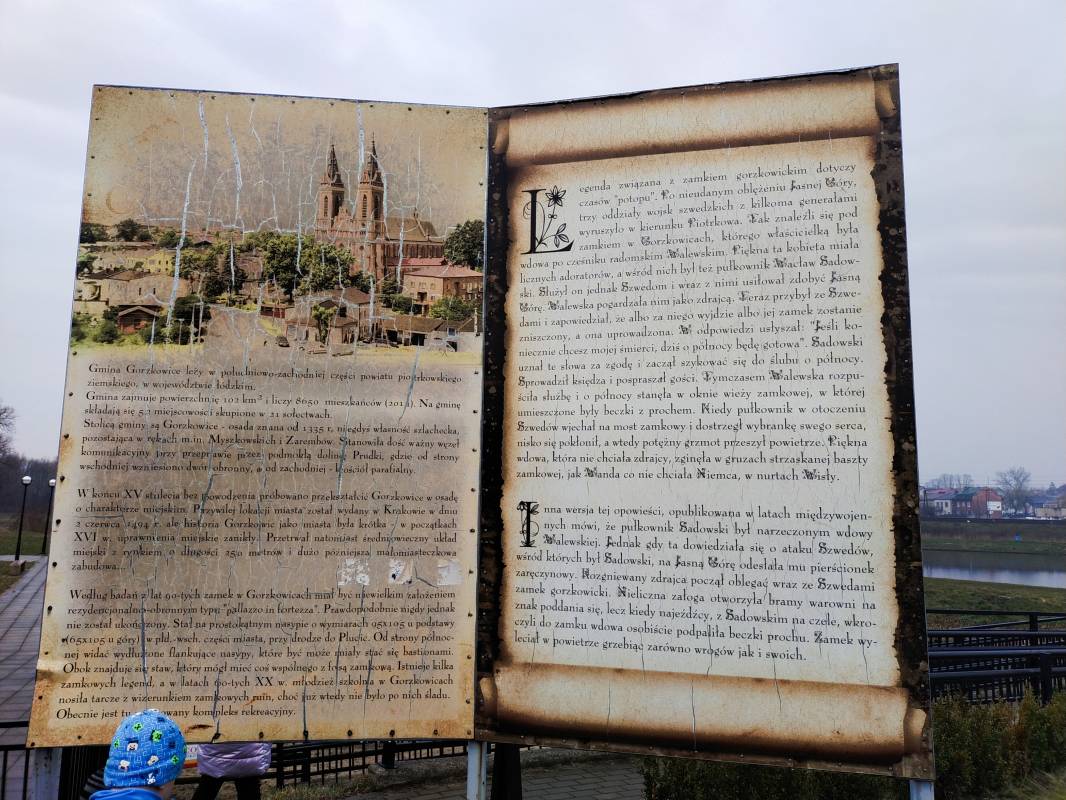 Gmina Gorzkowice leży w południowo-zachodniej części powiatu piotrkowskiego
ziemskiego, w województwie łódzkim.
Gmina zajmuje powierzchnię 102 km² i liczy 8650 mieszkańców (2014). Na gminę
składają się 52 miejscowości skupione w 21 sołectwach.
Stolicą gminy są Gorzkowice - osada znana od 1335 r. niegdyś własność szlachecka,
pozostająca w rękach m.in. Myszkowskich i Zarembów. Stanowiła dość ważny węzeł
komunikacyjny przy przeprawie przez podmokłą dolinę Prudki, gdzie od strony
wschodniej wzniesiono dwór obronny, a od zachodniej - kościół parafialny.
W końcu XV stulecia bez powodzenia próbowano przekształcić Gorzkowice w osadę
o charakterze miejskim. Przywilej lokacji miasta został wydany w Krakowie w dniu
2 czerwca 1494 r. ale historia Gorzkowic jako miasta była krótka - w początkach
XVI w. uprawnienia miejskie zanikły. Przetrwał natomiast średniowieczny układ
miejski z rynkiem o długości 250 metrów i dużo późniejsza małomiasteczkowa
zabudowa...
Według badań z lat 90-tych zamek w Gorzkowicach miał być niewielkim założeniem
rezydencjonalno-obronnym typu "pallazzo in fortezza". Prawdopodobnie nigdy jednak
nie został ukończony. Stał na prostokątnym nasypie o wymiarach 95x105 u podstawy
(65x105 u góry) w płd.-wsch. części miasta, przy drodze do Plucic. Od strony północ-
nej widać wydłużone flankujące nasypy, które być może miały stać się bastionami.
Obok znajduje się staw, który mógł mieć coś wspólnego z fosą zamkową. Istnieje kilka
zamkowych legend, a w latach 90-tych XX w. młodzież szkolna w Gorzkowicach
nosiła tarcze z wizerunkiem zamkowych ruin, choć już wtedy nie było po nich śladu.
Obecnie jest tu kompleks rekreacyjny.
Legenda związana z zamkiem gorzkowickim dotyczy
czasów "potopu". Po nieudanym oblężeniu Jasnej Góry,
trzy oddziały wojsk szwedzkich z kilkoma generałami
wyruszyło w kierunku Piotrkowa. Tak znaleźli się pod
zamkiem w Gorzkowicach, którego właścicielką była
wdowa po cześniku radomskim Walewskim. Piękna ta kobieta miała
licznych adoratorów, a wśród nich był też pułkownik Wacław Sadow-
ski. Służył on jednak Szwedom i wraz z nimi usiłował zdobyć Jasną
Górę. Walewska pogardzała nim jako zdrajcą. Teraz przybył ze Szwe-
dami i zapowiedział, że albo za niego wyjdzie albo jej zamek zostanie
zniszczony, a ona uprowadzona. W odpowiedzi usłyszał: "Jeśli ko-
niecznie chcesz mojej śmierci, dziś o północy będę gotowa". Sadowski
uznał te słowa za zgodę i zaczął szykować się do ślubu o północy.
Sprowadził księdza i pospraszał gości. Tymczasem Walewska rozpu-
ściła służbę i o północy stanęła w oknie wieży zamkowej, w której
umieszczone były beczki z prochem. Kiedy pułkownik w otoczeniu
Szwedów wjechał na most zamkowy i dostrzegł wybrankę swego serca,
nisko się pokłonił, a wtedy potężny grzmot przeszył powietrze. Piękna
wdowa, która nie chciała zdrajcy, zginęła w gruzach strzaskanej baszty
zamkowej, jak Wanda co nie chciała Niemca, w nurtach Wisły.
Inna wersja tej opowieści, opublikowana w latach międzywojen-
nych mówi, że pułkownik Sadowski był narzeczonym wdowy
Walewskiej. Jednak gdy ta dowiedziała się o ataku Szwedów,
wśród których był Sadowski, na Jasną Górę odesłała mu pierścionek
zaręczynowy. Rozgniewany zdrajca począł oblegać wraz ze Szwedami
zamek gorzkowicki. Nieliczna załoga otworzyła bramy warowni na
znak poddania się, lecz kiedy najeźdźcy, z Sadowskim na czele, wkro-
czyli do zamku wdowa osobiście podpaliła beczki prochu. Zamek wy-
leciał w powietrze grzebiąc zarówno wrogów jak i swoich.